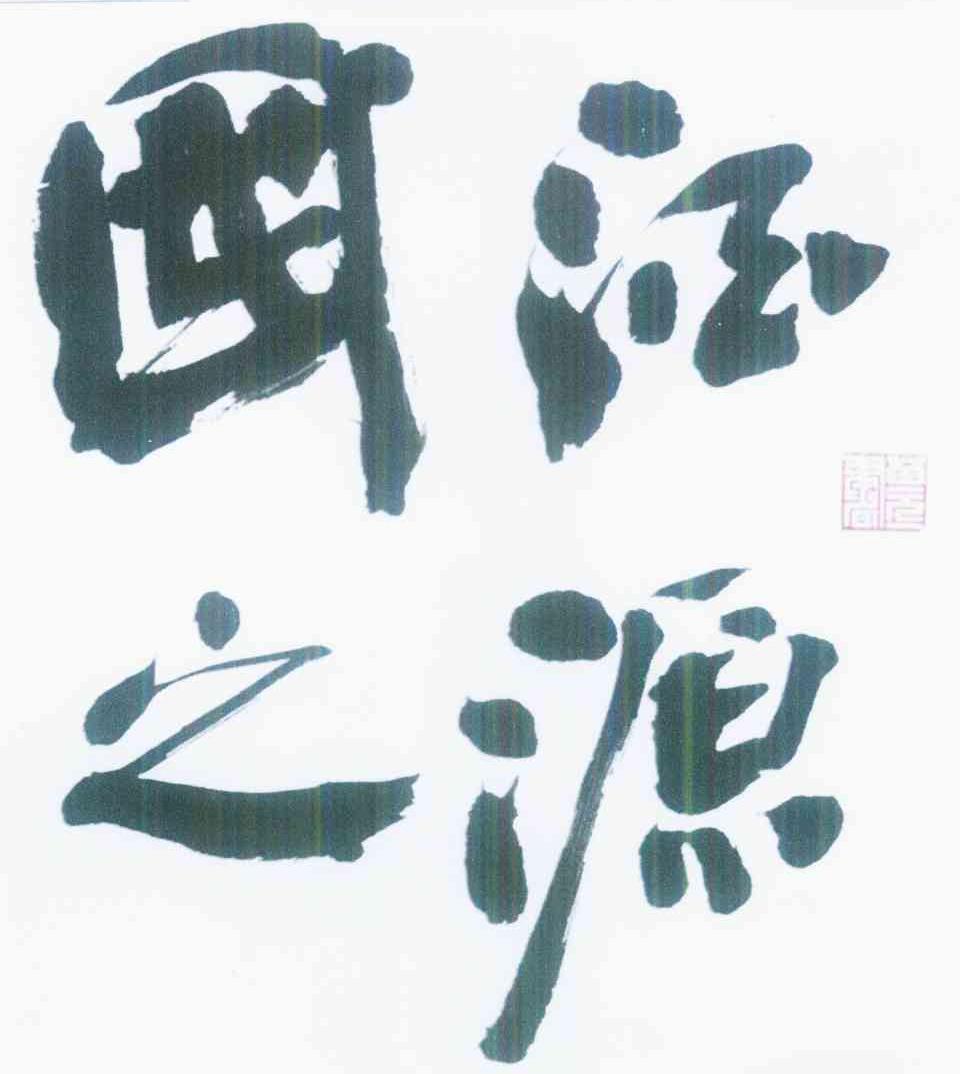 國酒
之源